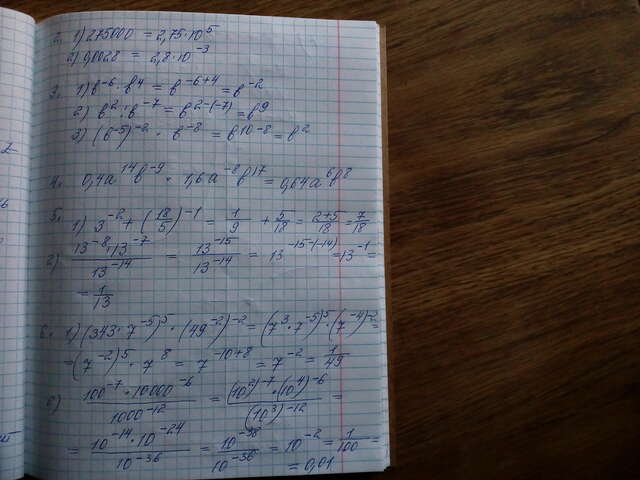 2. 1) 275000 = 2,75·10⁵
2) 0,0028 = 2,8·10⁻³
3. 1) b⁻⁶·b⁴ = b⁻⁶⁺⁴ = b⁻²
2) b²:b⁻⁷ = b²⁻⁽⁻⁷⁾ = b⁹
3) (b⁻⁵)⁻²·b⁻⁸ = b¹⁰⁻⁸ = b²
4. 0,4a¹⁴b⁻⁹·1,6a⁻⁸b¹⁷ = 0,64a⁶b⁸
5. 1) 3⁻² + (18/5)⁻¹ = 1/9 + 5/18 = 2+5/18 = 7/18
2) 13⁻⁸·13⁻⁷/13⁻¹⁴ = 13⁻¹⁵/13⁻¹⁴ = 13⁻¹⁵⁻⁽⁻¹⁴⁾ = 13⁻¹ =
= 1/13
6. 1) (343·7⁻⁵)⁵·(49⁻²)⁻² = (7³·7⁻⁵)⁵·(7⁻⁴)⁻² =
= (7⁻²)⁵·7⁸ = 7⁻¹⁰⁺⁸ = 7⁻² = 1/49
2) 100⁻⁷·10000⁻⁶/1000⁻¹² = (10²)⁻⁷·(10⁴)⁻⁶/(10³)⁻¹² =
= 10⁻¹⁴·10⁻²⁴/10⁻³⁶ = 10⁻³⁸/10⁻³⁶ = 10⁻² = 1/100 =
= 0,01